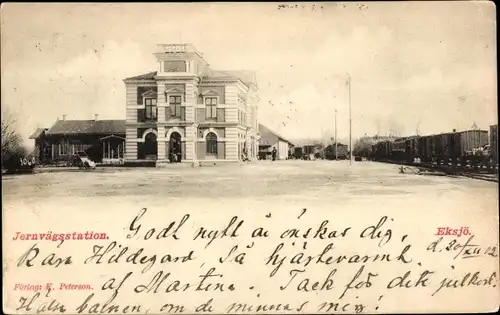 Jernvägsstation.
Eksjö.
Godt nytt år önskas dig,
Kära Hildegard! Så hjärtevarmt
d. 30/XII 02
af Martina. Tack för ditt julkort.
Förlag: K. Peterson.
Hälsa barnen, om de minnas mig!